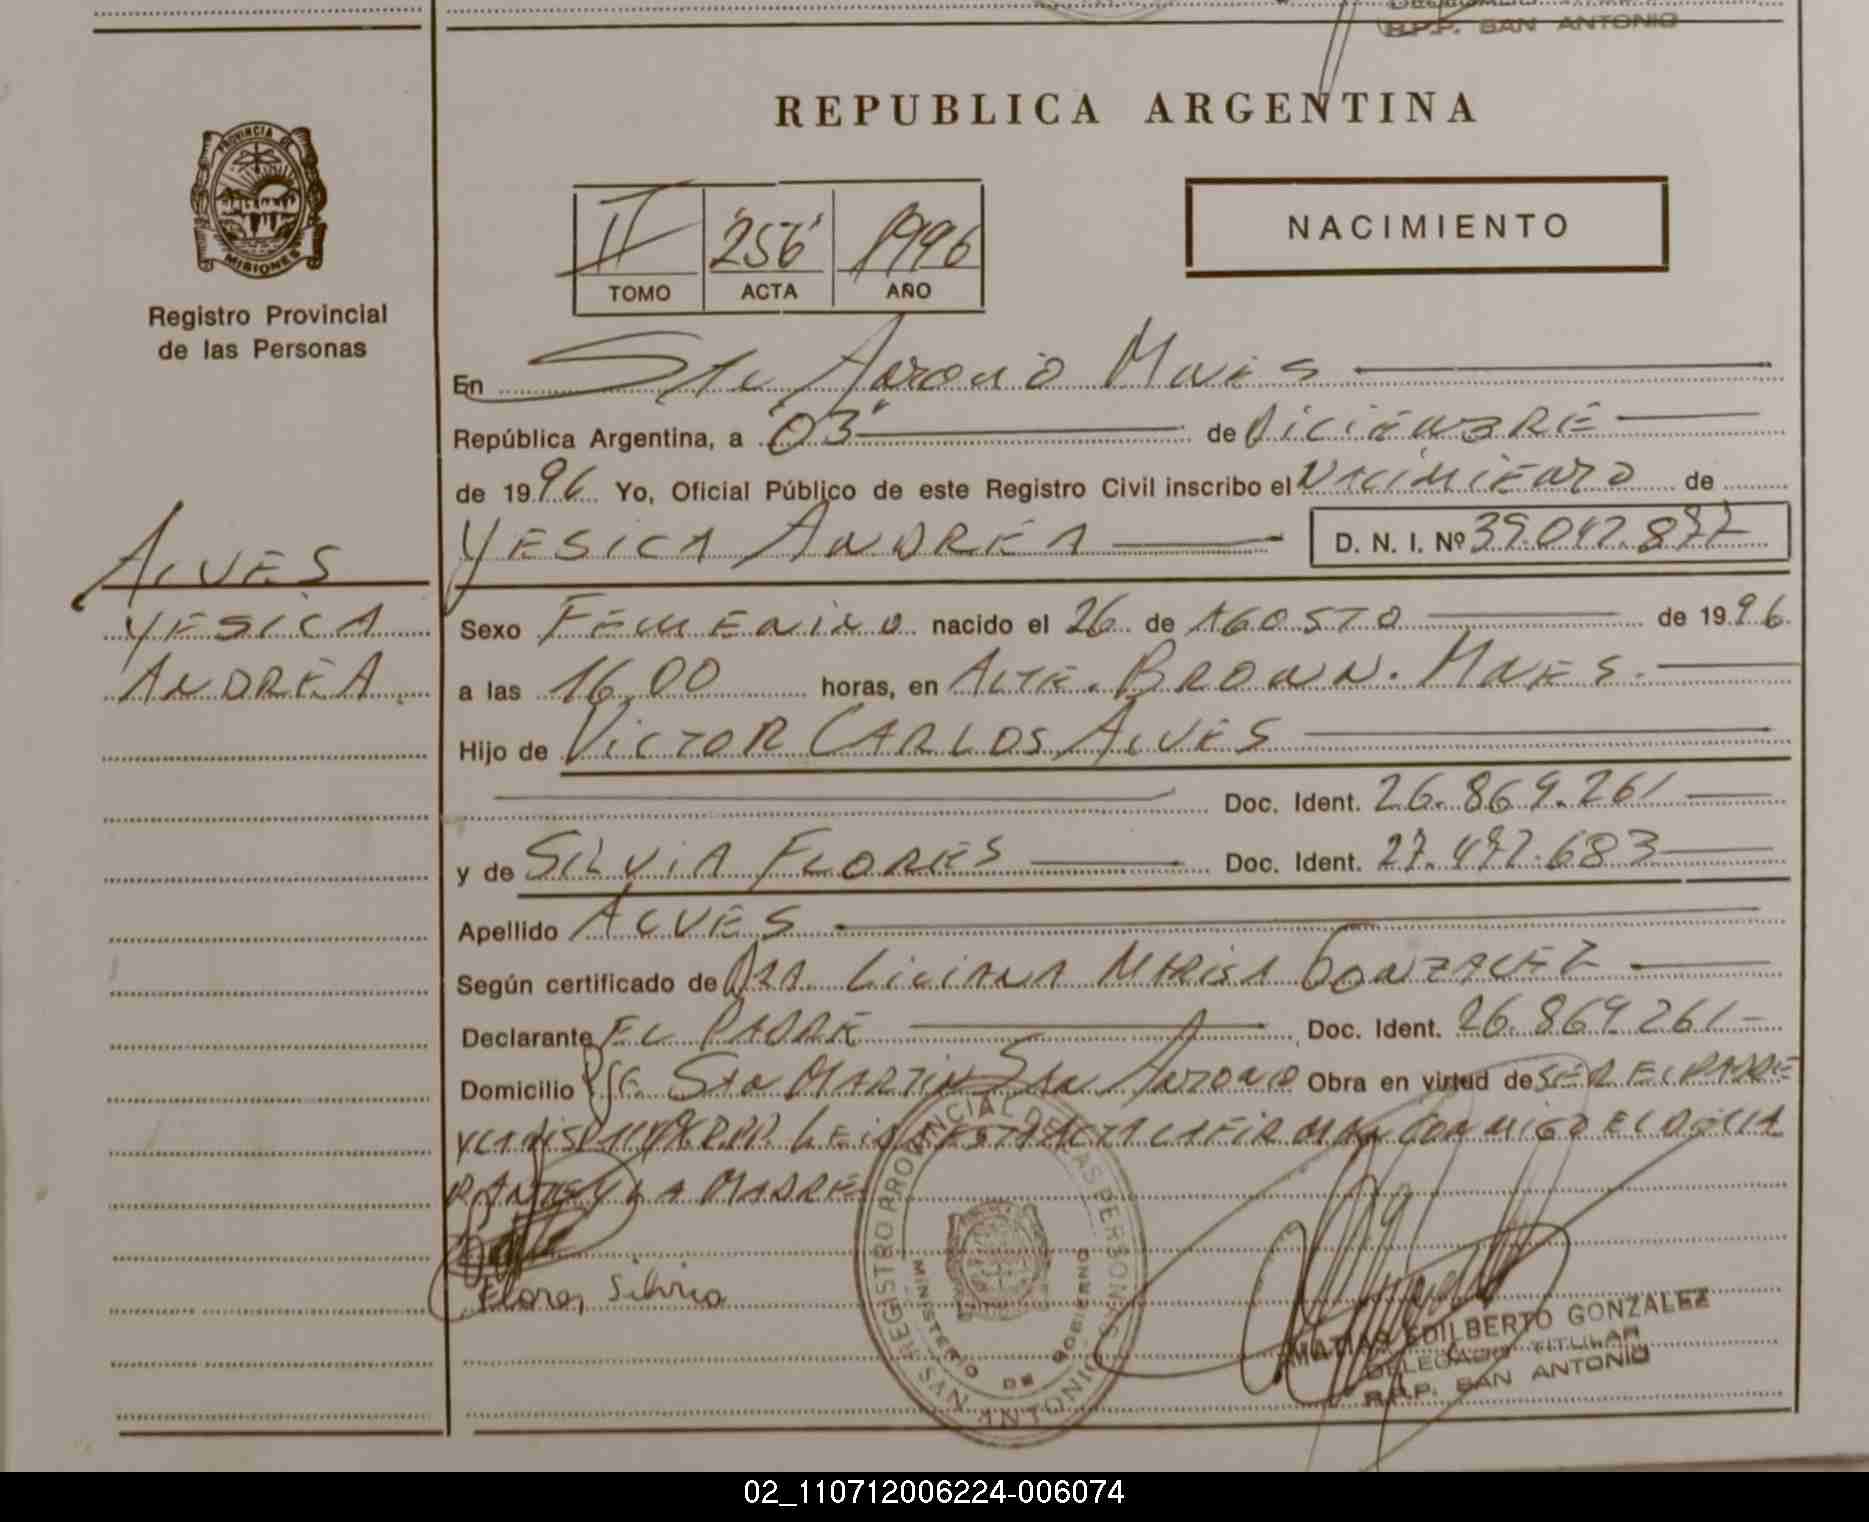 R.P.P. SAN ANTONIO
REPUBLICA ARGENTINA
PROVINCIA DE
MISIONES
Registro Provincial
de las Personas
II 256 1996
TOMO ACTA AÑO
NACIMIENTO
En San Antonio Mnes
República Argentina, a "03" de Diciembre
de 1996 Yo, Oficial Público de este Registro Civil inscribo el Nacimiento de
YESICA ANDREA D. N. I. Nº
ALVES
YESICA
ANDREA
Sexo FEMENINO nacido el 26 de AGOSTO de 1996
a las 16,00 horas, en ALTE. BROWN. MNES.
Hijo de VICTOR CARLOS ALVES
Doc. Ident. 26.869.261
y de SILVIA FLORES Doc. Ident. 27.472.683
Apellido ALVES
Según certificado de DRA. LILIANA MARISA GONZALEZ
Declarante EL PADRE Doc. Ident. 26.869.261
Domicilio SAN MARTIN SAN ANTONIO Obra en virtud de SER EL PADRE
ESTA ACTA LA FIRMAN CONMIGO EL DECLA
RANTE Y LA MADRE
Flores Silvia
REGISTRO PROVINCIAL DE LAS PERSONAS
MINISTERIO DE GOBIERNO
SAN ANTONIO
MATIAS EDILBERTO GONZALEZ
DELEGADO TITULAR
R.P.P. SAN ANTONIO
02_110712006224-006074